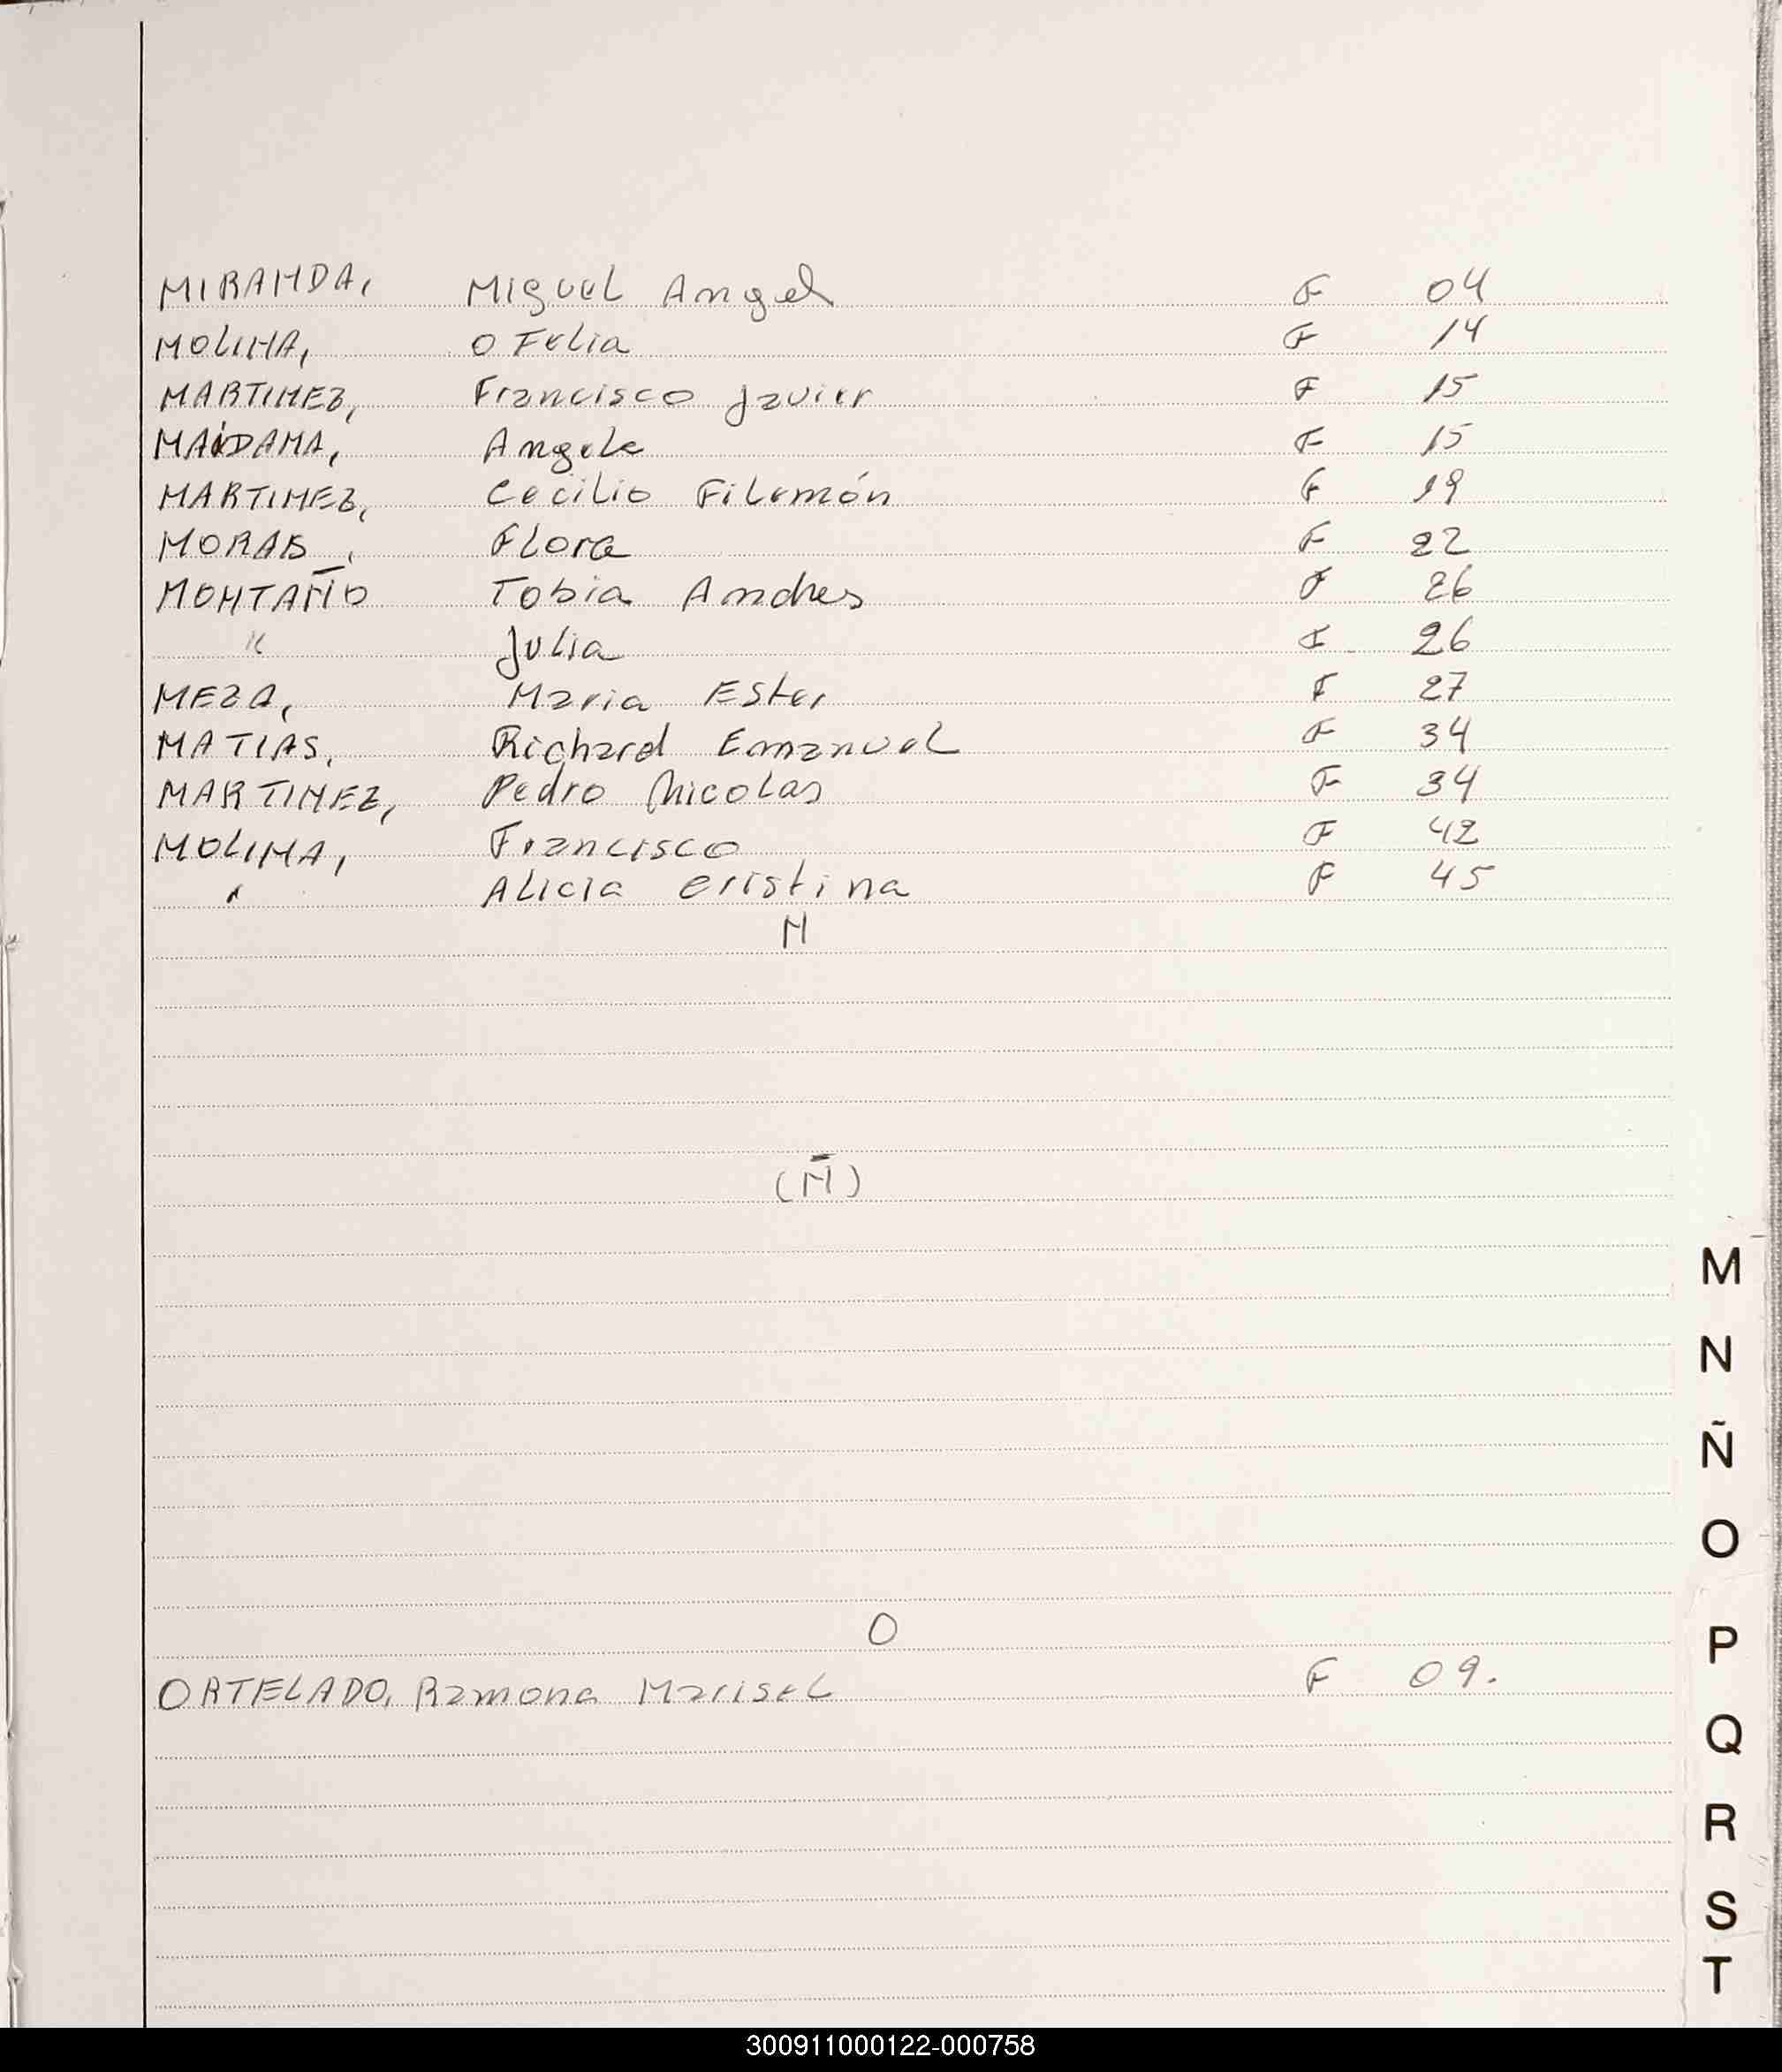 MIRANDA, Miguel Angel F 04
MOLINA, OFelia F 14
MARTINEZ, Francisco Javier F 15
MAIDANA, Angela F 15
MARTINEZ, Cecilio Filemón F 19
MORAIS, Flora F 22
MONTAÑO Tobia Andres F 26
" Julia F 26
MEZA, Maria Ester F 27
MATIAS, Richard Emanuel F 34
MARTINEZ, Pedro Nicolas F 34
MOLINA, Francisco F 42
" Alicia Cristina F 45
N
(Ñ)
O
ORTELADO, Ramona Marisel F 09.
M
N
Ñ
O
P
Q
R
S
T
300911000122-000758